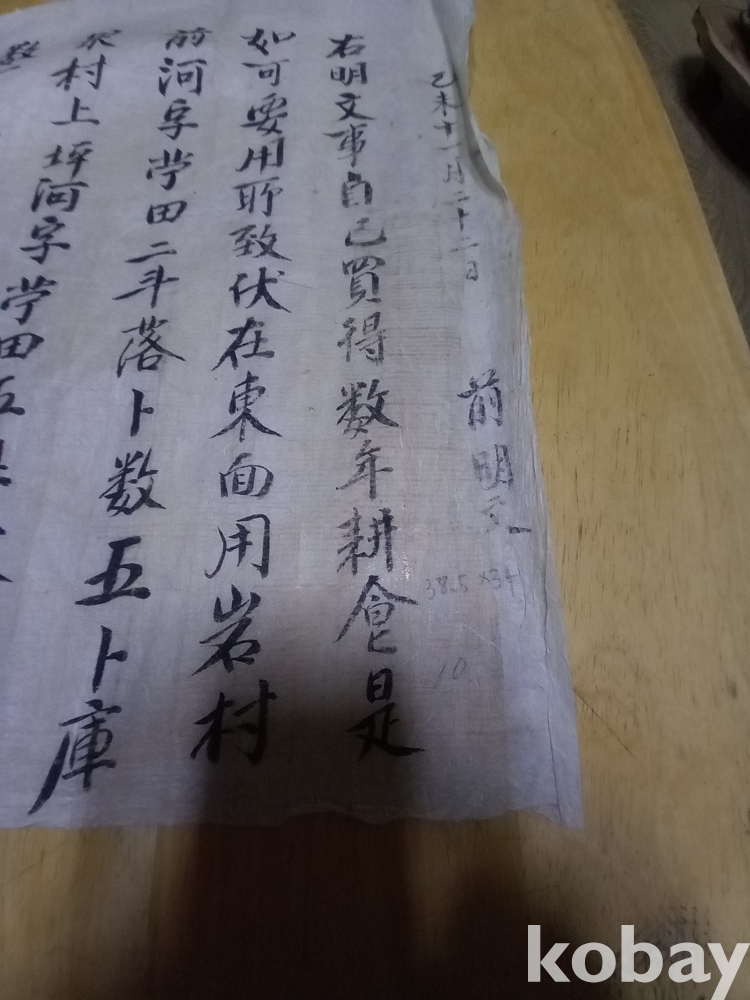 己未十一月二十二日 前明文
38.5 x34
10
右明文事自己買得数年耕食是
如可要用所致伏在東面用岩村
前河字畓田二斗落卜数五卜庫
村上坪河字畓田五
kobay